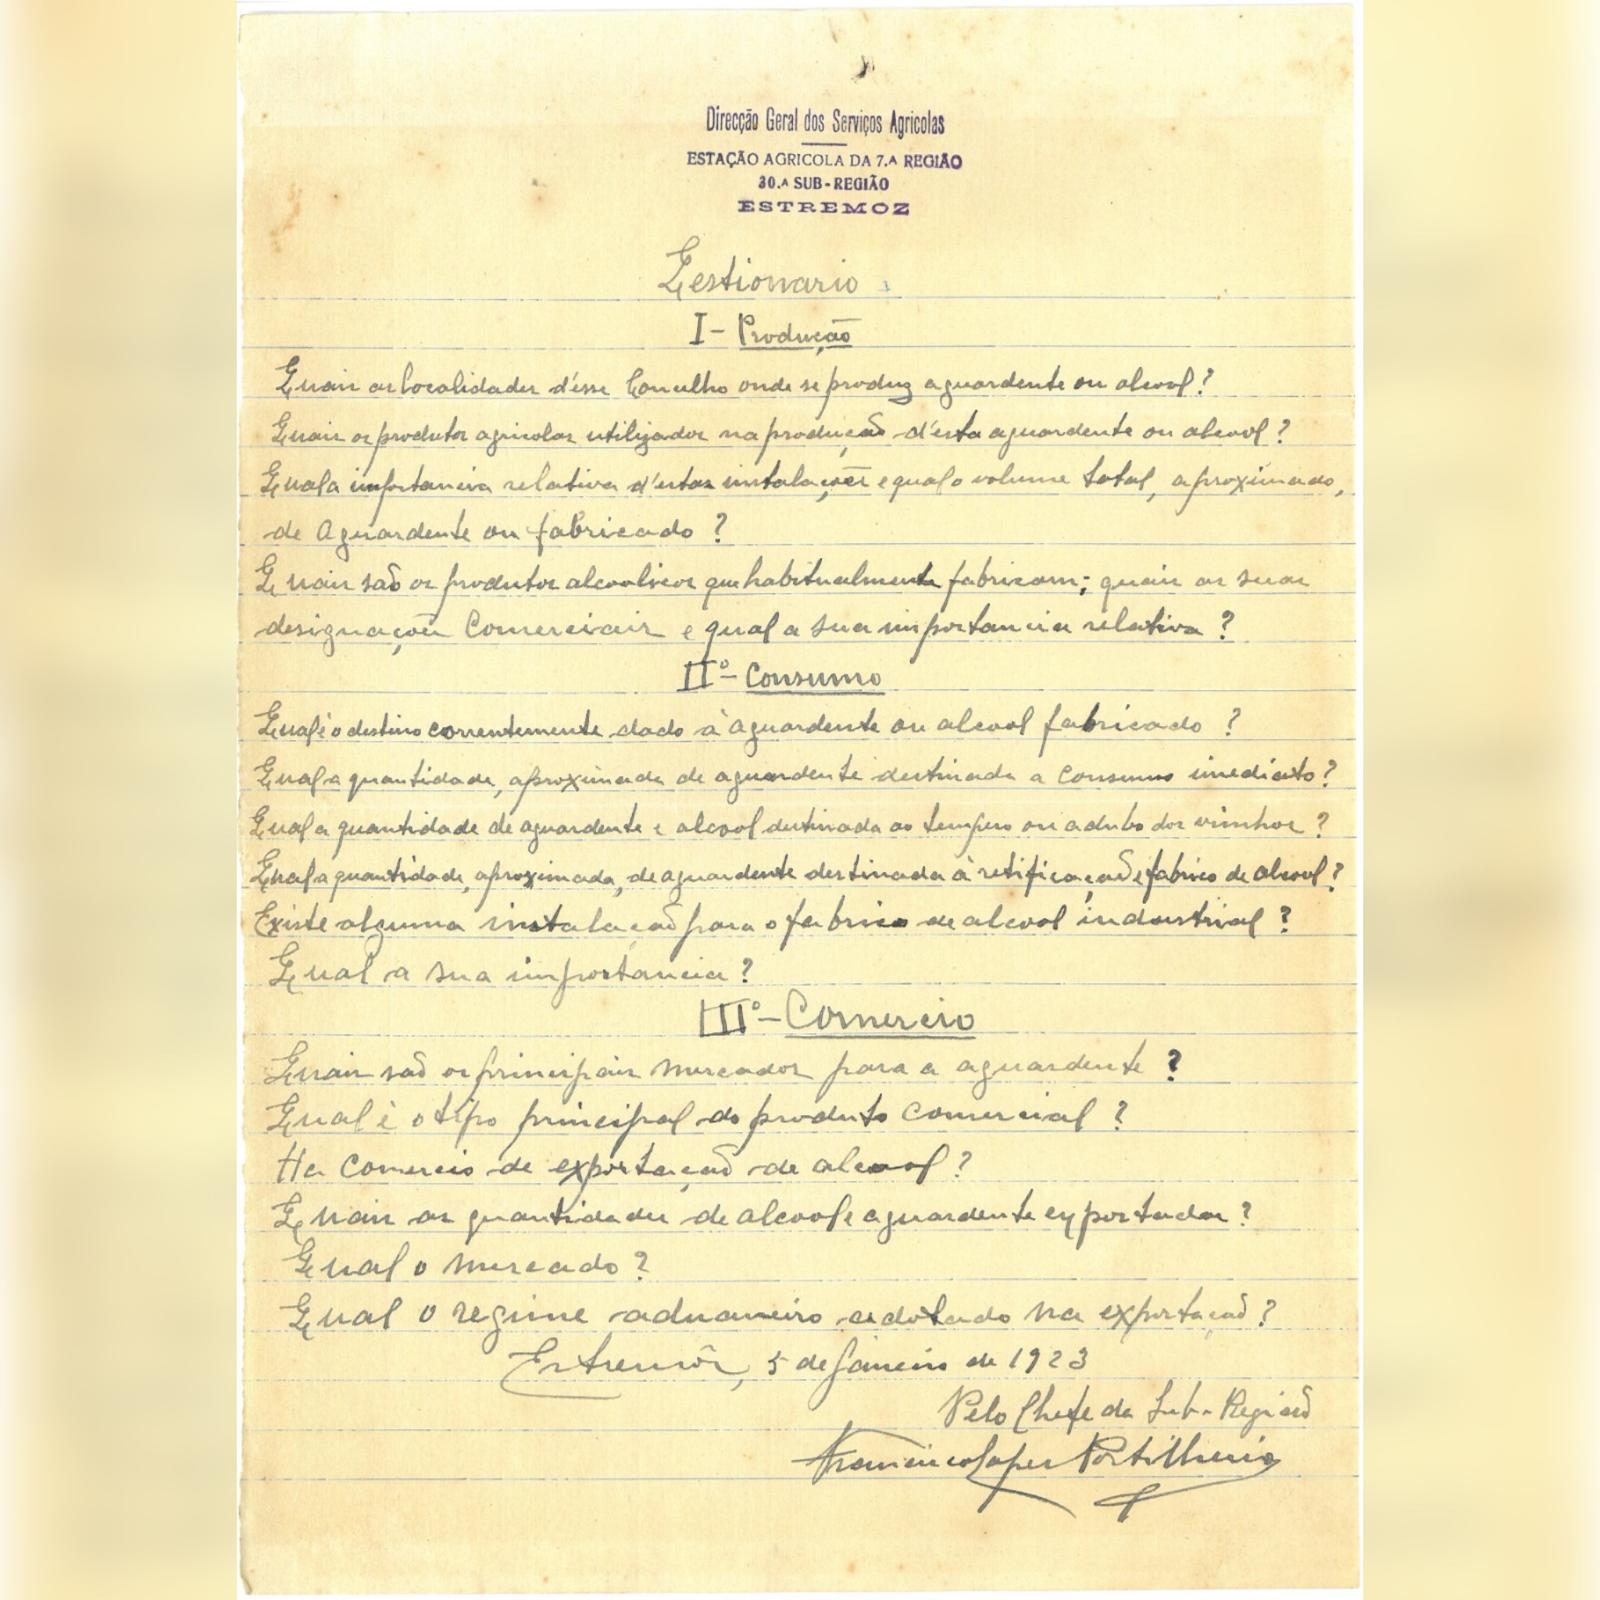 Direcção Geral dos Serviços Agricolas
ESTAÇÃO AGRICOLA DA 7.ª REGIÃO
30.ª SUB-REGIÃO
ESTREMOZ
Qestionario
I - Produção
Quais as localidades d'ésse Concelho onde se produz aguardente ou alcool?
Quais os produtos agricolas utilizados na produção d'esta aguardente ou alcool?
Qual a importancia relativa d'estas instalações e qual o volume total, aproximado,
de Aguardente ou fabricado?
Quais são os produtos alcoolicos que habitualmente fabricam; quais as suas
designações Comerciais e qual a sua importancia relativa?
IIº - Consumo
Qual é o destino correntemente dado à aguardente ou alcool fabricado?
Qual a quantidade, aproximada de aguardente destinada a consumo imediato?
Qual a quantidade de aguardente e alcool destinada ao tempero ou adubo dos vinhos?
Qual a quantidade, aproximada, de aguardente destinada à retificação e fabrico de alcool?
Existe alguma instalação para o fabrico de alcool industrial?
Qual a sua importancia?
IIIº - Comercio
Quais são os principais mercados para a aguardente?
Qual é o tipo principal do produto comercial?
Ha comercio de exportação de alcool?
Quais as quantidades de alcool e aguardente exportadas?
Qual o mercado?
Qual o regime aduaneiro adotado na exportação?
Estremôz, 5 de Janeiro de 1923
Pelo Chefe da Sub-Região
Francisco Lopes